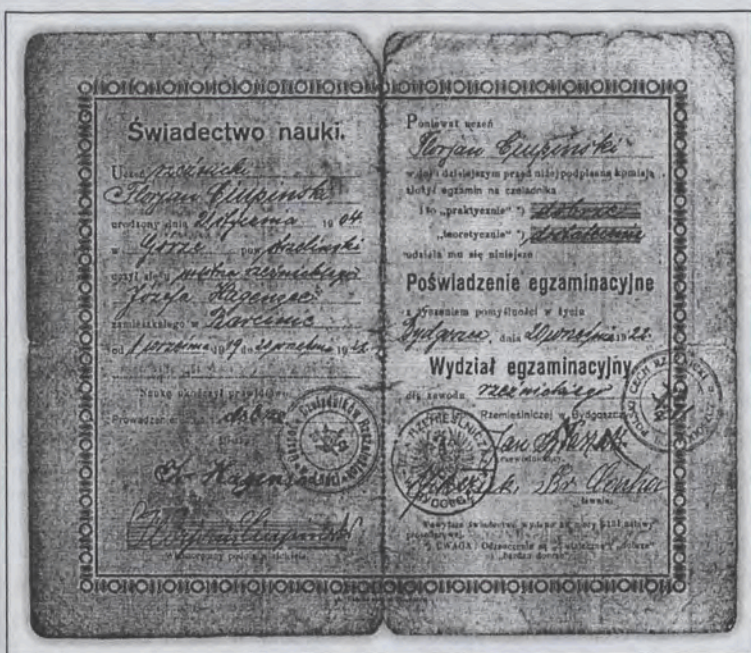 Świadectwo nauki.
Uczeń rzeźnicki
Florjan Ciupinski
urodzony dnia 2 stycznia 1904
w Górze pow.
uczył się u mistrza rzeźnickiego
Józefa Hagenza
zamieszkałego w Barcinie
od 1 września 1919 do 20 września 1922
Naukę ukończył prawidłowo
Prowadzenie dobrze
Hagenza
Florjan Ciupinski
Własnoręczny podpis właściciela.
Ponieważ uczeń
Florjan Ciupinski
w dniu dzisiejszym przed niżej podpisaną komisją
złożył egzamin na czeladnika
i to „praktycznie" *) dobrze
„teoretycznie" *) dostatecznie
udziela mu się niniejsze
Poświadczenie egzaminacyjne
z życzeniem pomyślności w życiu
Bydgoszcz, dnia 20 września 1922
Wydział egzaminacyjny
dla zawodu rzeźnickiego
Rzemieślniczej w Bydgoszczy
Jan
przewodniczący.
ławnik.
Powyższe świadectwo wydane na mocy § 131 ustawy
*) UWAGA: Odznaczenie są „dostatecznie" „dobrze"
„bardzo dobrze"